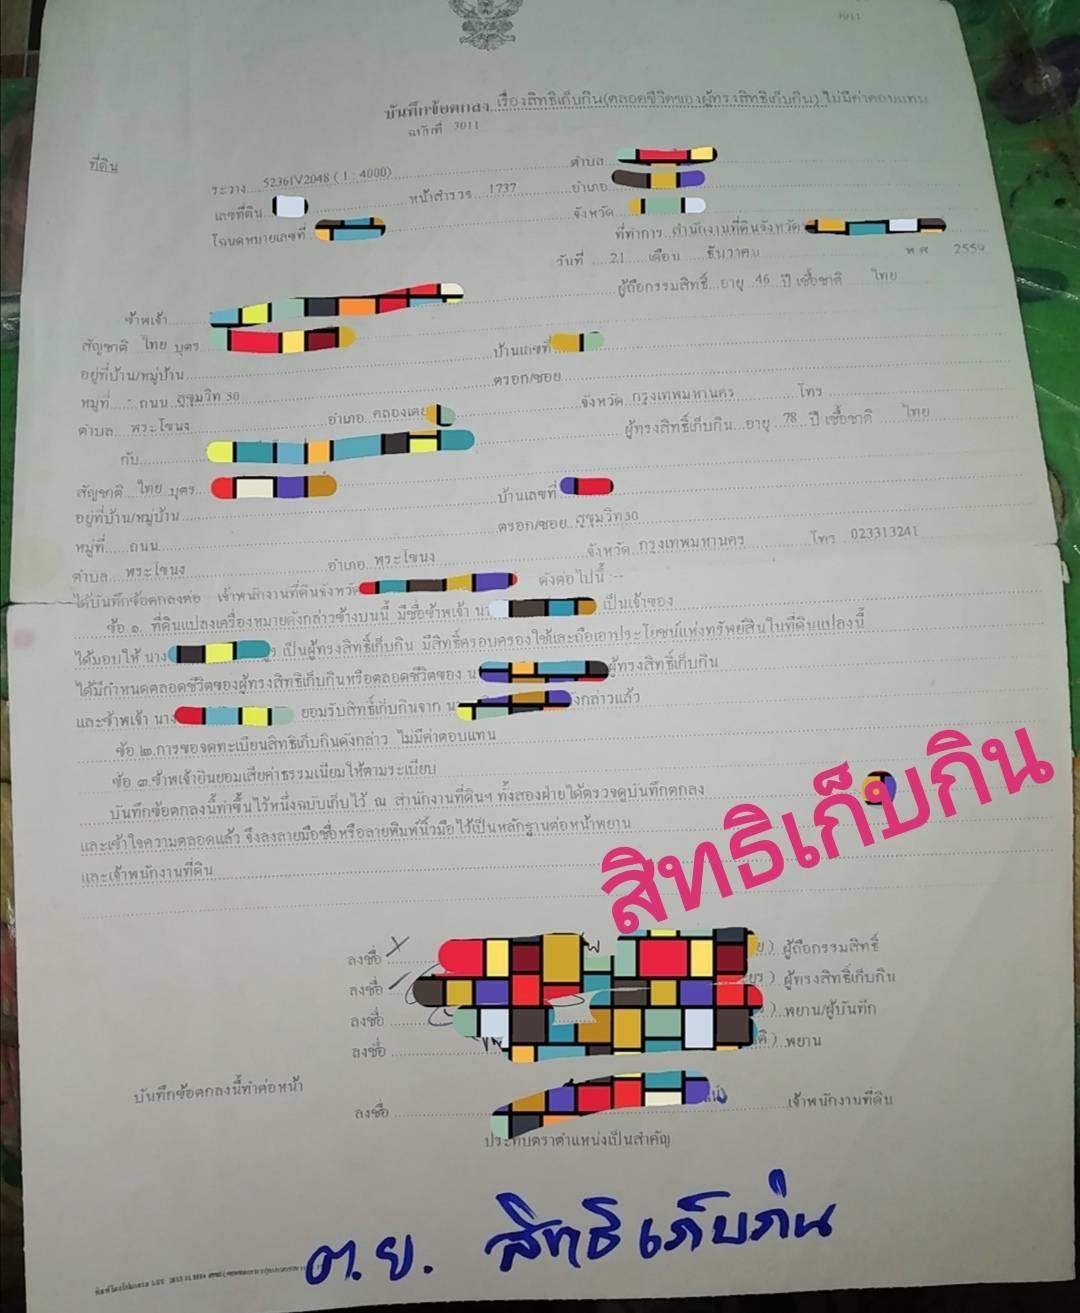 3011
บันทึกข้อตกลง เรื่องสิทธิเก็บกิน(ตลอดชีวิตของผู้ทรงสิทธิเก็บกิน) ไม่มีค่าตอบแทน
ฉบับที่ 3011
ที่ดิน
ระวาง 5236IV2048 ( 1 : 4000) ตำบล
เลขที่ดิน หน้าสำรวจ 1737 อำเภอ
โฉนดหมายเลขที่ จังหวัด
ที่ทำการ สำนักงานที่ดินจังหวัด
วันที่ 21 เดือน ธันวาคม พ.ศ. 2559
ข้าพเจ้า ผู้ถือกรรมสิทธิ์ อายุ 46 ปี เชื้อชาติ ไทย
สัญชาติ ไทย บุตร บ้านเลขที่
อยู่ที่บ้าน/หมู่บ้าน ตรอก/ซอย
หมู่ที่ - ถนน สุขุมวิท 50
ตำบล พระโขนง อำเภอ คลองเตย จังหวัด กรุงเทพมหานคร โทร
กับ ผู้ทรงสิทธิเก็บกิน อายุ 78 ปี เชื้อชาติ ไทย
สัญชาติ ไทย บุตร บ้านเลขที่
อยู่ที่บ้าน/หมู่บ้าน
หมู่ที่ ถนน ตรอก/ซอย สุขุมวิท50
ตำบล พระโขนง อำเภอ พระโขนง จังหวัด กรุงเทพมหานคร โทร 023313241
ได้บันทึกข้อตกลงต่อ เจ้าพนักงานที่ดินจังหวัด ดังต่อไปนี้ :--
ข้อ ๑. ที่ดินแปลงเครื่องหมายดังกล่าวข้างบนนี้ มีชื่อข้าพเจ้า นา เป็นเจ้าของ
ได้มอบให้ นาง เป็นผู้ทรงสิทธิเก็บกิน มีสิทธิ์ครอบครองใช้และถือเอาประโยชน์แห่งทรัพย์สินในที่ดินแปลงนี้
ได้มีกำหนดตลอดชีวิตของผู้ทรงสิทธิเก็บกินหรือตลอดชีวิตของ น ผู้ทรงสิทธิเก็บกิน
และข้าพเจ้า นาง ยอมรับสิทธิเก็บกินจาก นา ังกล่าวแล้ว
ข้อ ๒.การขอจดทะเบียนสิทธิเก็บกินดังกล่าว ไม่มีค่าตอบแทน
ข้อ ๓.ข้าพเจ้ายินยอมเสียค่าธรรมเนียมให้ตามระเบียบ
บันทึกข้อตกลงนี้ทำขึ้นไว้หนึ่งฉบับเก็บไว้ ณ สำนักงานที่ดินฯ ทั้งสองฝ่ายได้ตรวจดูบันทึกตกลง
และเข้าใจความตลอดแล้ว จึงลงลายมือชื่อหรือลายพิมพ์นิ้วมือไว้เป็นหลักฐานต่อหน้าพยาน
และเจ้าพนักงานที่ดิน
สิทธิเก็บกิน
ลงชื่อ ) ผู้ถือกรรมสิทธิ์
ลงชื่อ ) ผู้ทรงสิทธิเก็บกิน
ลงชื่อ ) พยาน/ผู้บันทึก
ลงชื่อ ) พยาน
บันทึกข้อตกลงนี้ทำต่อหน้า
ลงชื่อ เจ้าพนักงานที่ดิน
ประทับตราตำแหน่งเป็นสำคัญ
ต.ย. สิทธิเก็บกิน